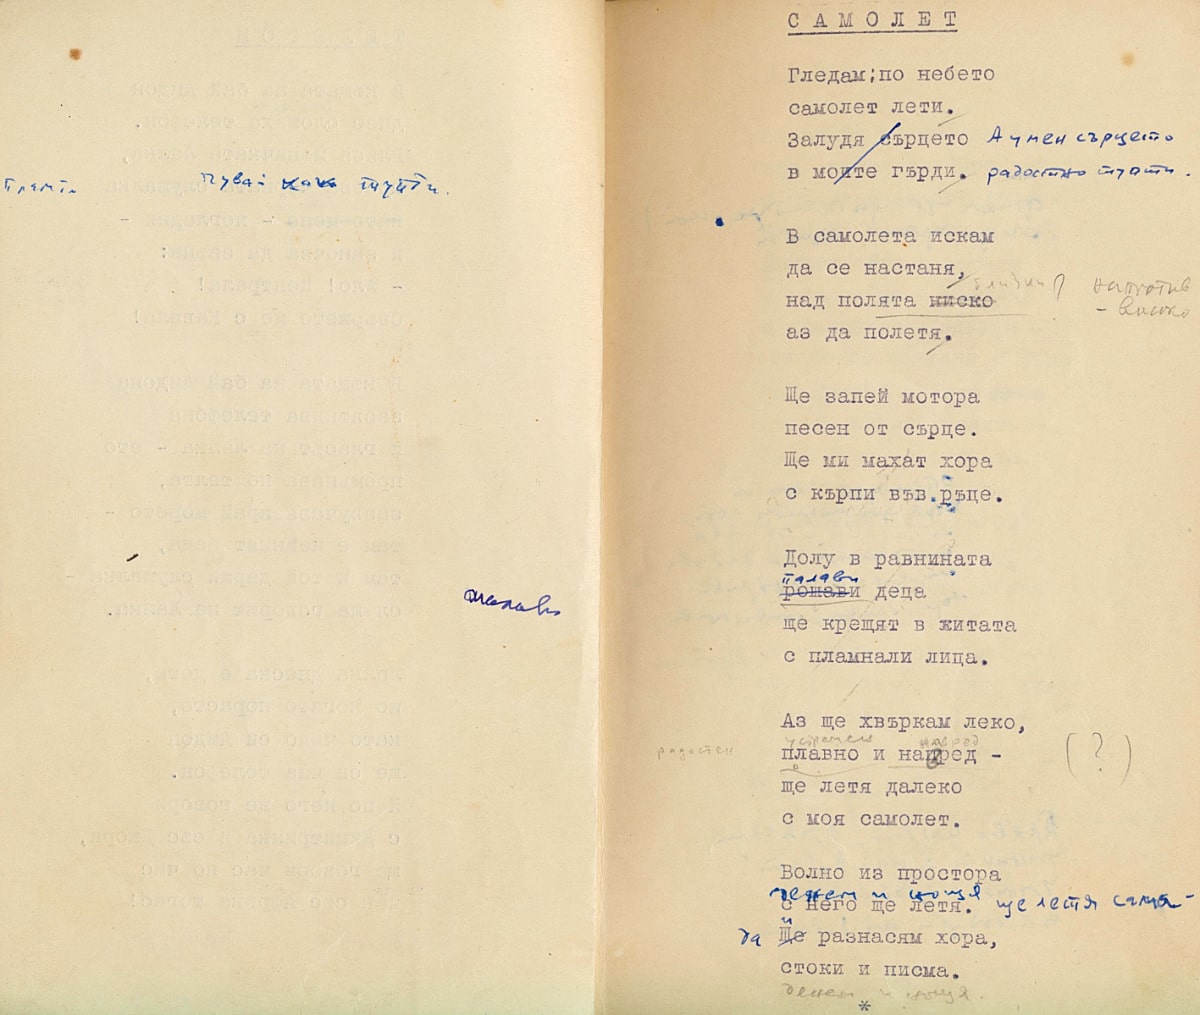 САМОЛЕТ
Гледам;по небето
самолет лети.
Залудя сърцето А умен сърцето
в моите гърди. радостно тупти.
тупти.
В самолета искам
да се настаня,
над полята ниско напротив
аз да полетя. - високо
Ще запей мотора
песен от сърце.
Ще ми махат хора
с кърпи във ръце.
Долу в равнината
палави
рошави деца
ще крещят в житата
с пламнали лица.
Аз ще хвъркам леко,
устремен напред
радостен плавно и напред - (?)
ще летя далеко
с моя самолет.
Волно из простора
денем и нощя
с него ще летя. ще летя
да Ще разнасям хора,
стоки и писма.
денем и нощя.
*